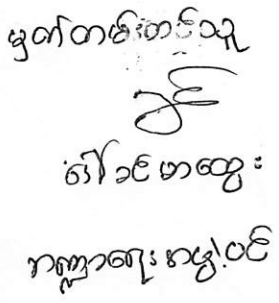 မှတ်တမ်းတင်သူ
ခင်
ဒေါ်ခင်မာထွေး
ဘဏ္ဍာရေးအဖွဲ့ဝင်